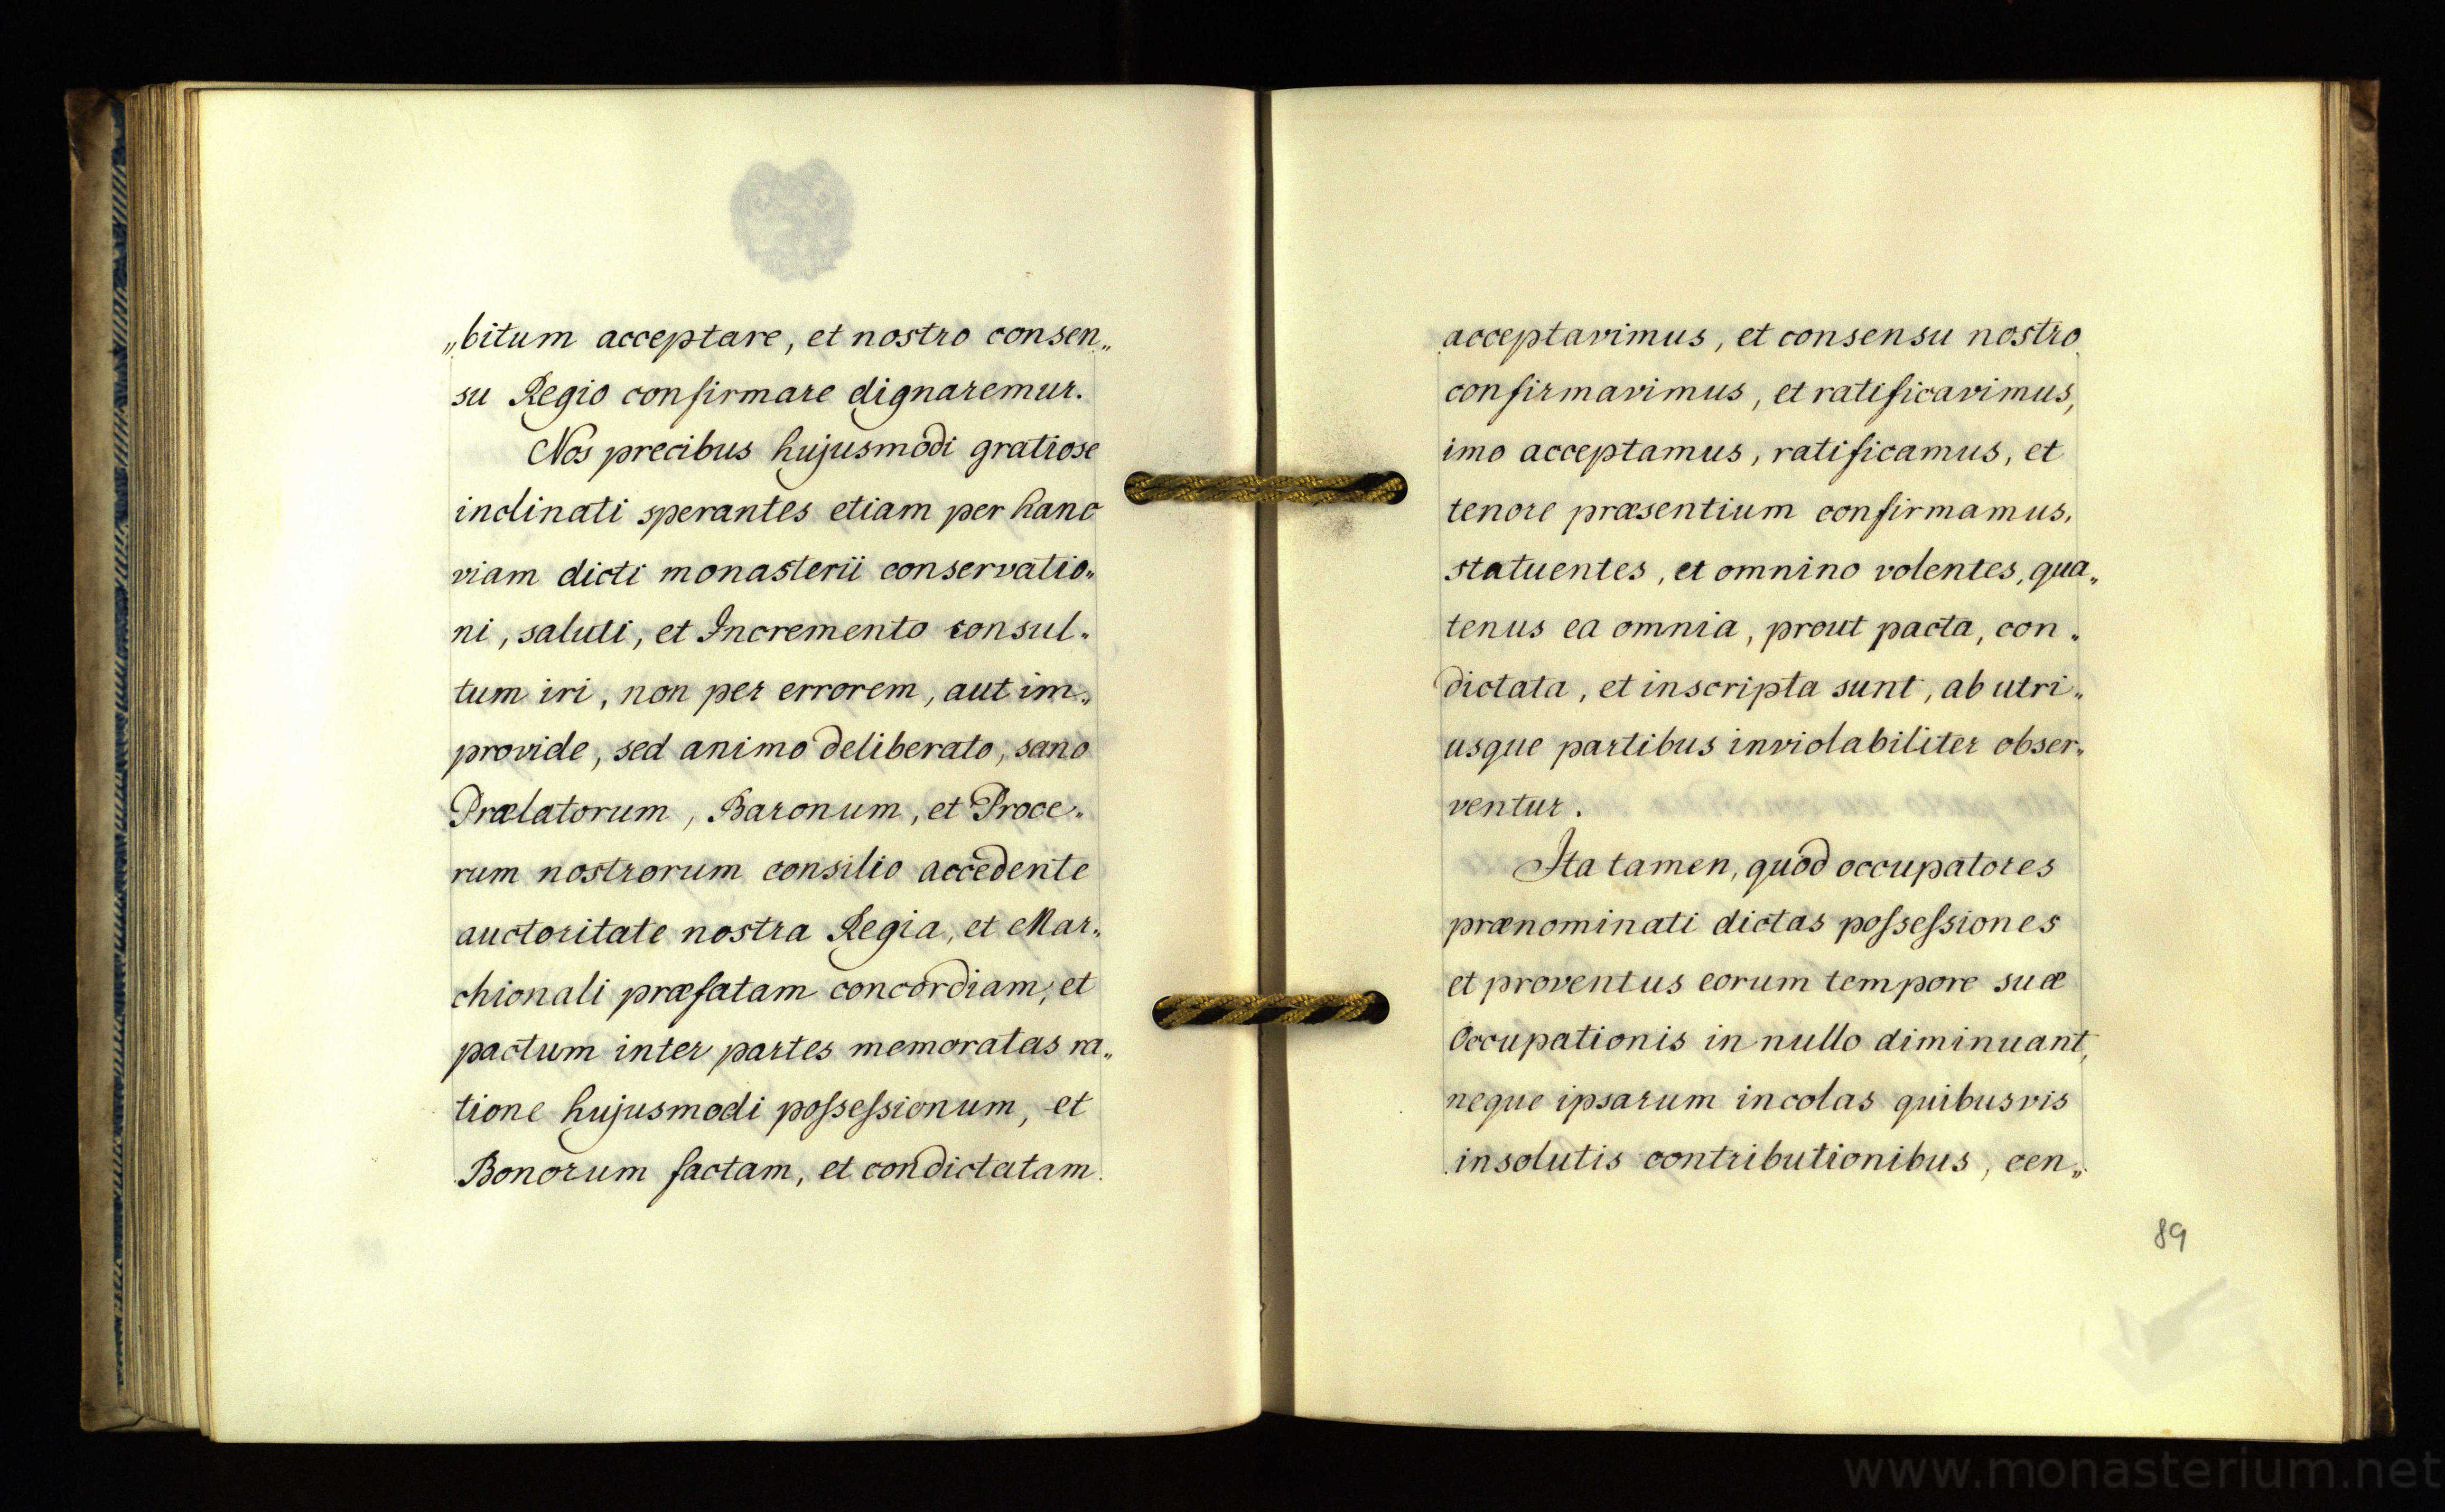 „bitum acceptare, et nostro consen„
su Regio confirmare dignaremur.
Nos precibus hujusmodi gratiose
inclinati sperantes etiam per hanc
viam dicti monasterii conservatio„
ni, saluti, et Incremento consul„
tum iri, non per errorem, aut im„
provide, sed animo deliberato, sano
Prælatorum, Baronum, et Proce„
rum nostrorum consilio accedente
auctoritate nostra Regia, et Mar„
chionali præfatam concordiam, et
pactum inter partes memoratas ra„
tione hujusmodi poſseſsionum, et
Bonorum factam, et condictatam
acceptavimus, et consensu nostro
confirmavimus, et ratificavimus,
imo acceptamus, ratificamus, et
tenore præsentium confirmamus.
statuentes, et omnino volentes, qua„
tenus ea omnia, prout pacta, con„
dictata, et inscripta sunt, ab utri„
usque partibus inviolabiliter obser„
ventur.
Ita tamen, quod occupatores
prænominati dictas poſseſsiones
et proventus eorum tempore suæ
Occupationis in nullo diminuant,
neque ipsarum incolas quibusvis
insolutis contributionibus, cen„
89
www.monasterium.net